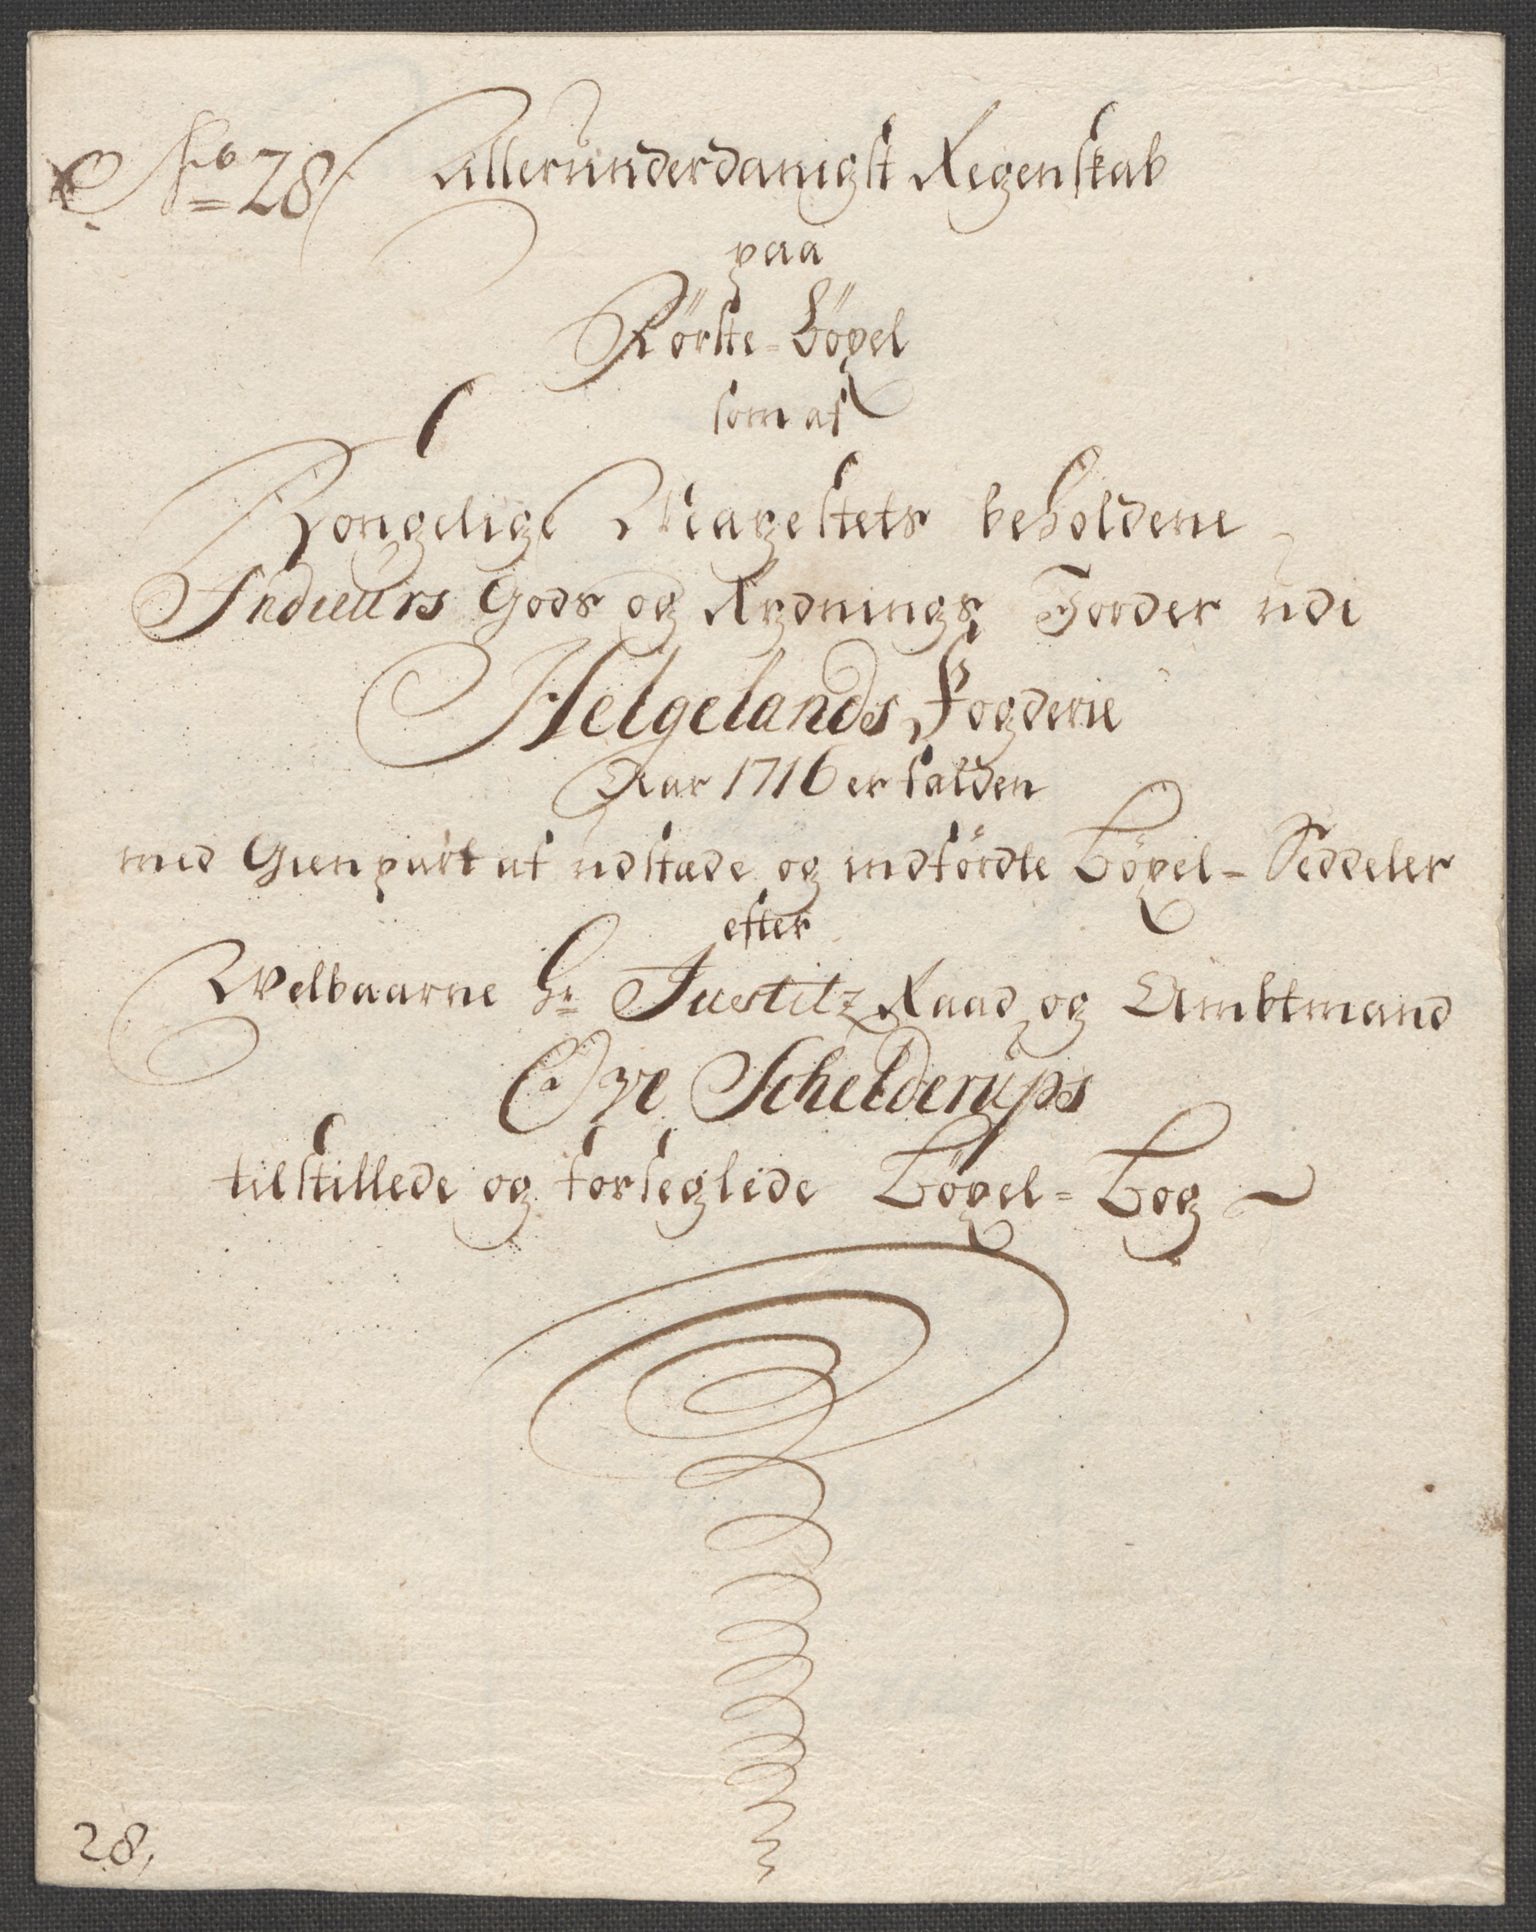 No 28 Allerunderdanigst Regenskab
paa
Förste-Böxel
som af
Kongelige Mayestets beholdene
Indieurs Gods og Rydnings Jorder udi
Helgelands Fogderie
Aar 1716 er falden
med Gienpart af udstæde og indfördte Böxel-Seddeler
efter
Welbaarne Hr Justitz Raad og Ambtmand
Ove Schelderups
tilstillede og forseglede Böxel=Bog
28,